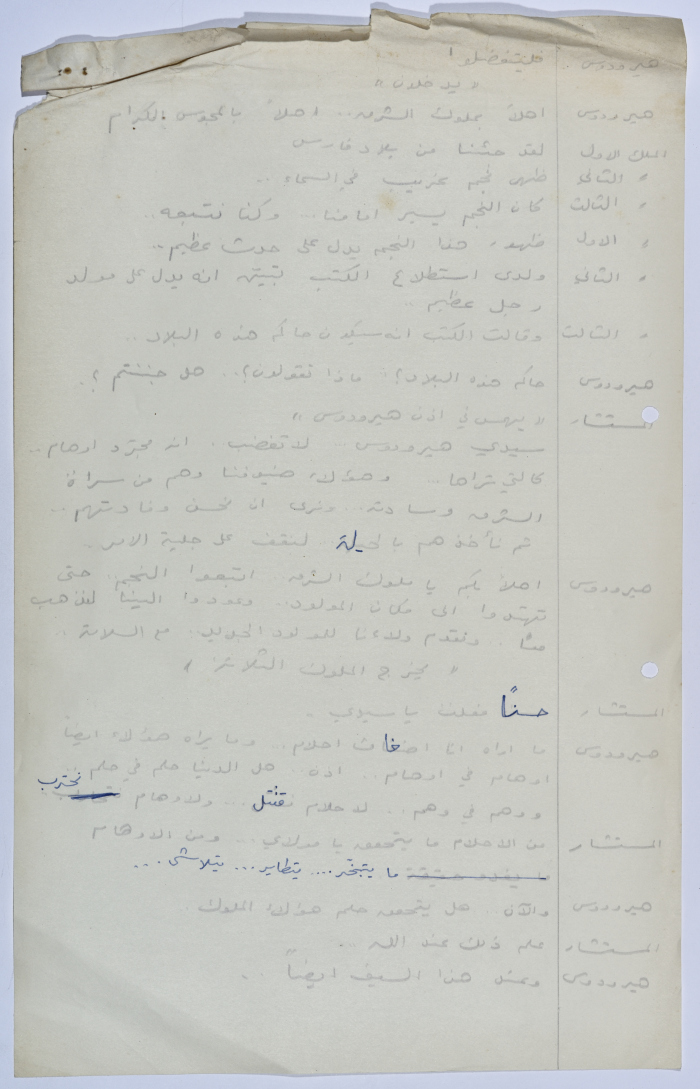 هيرودوس .. فليتفضلوا
« يدخلون »
هيرودوس اهلاً بملوك الشرق .. اهلاً بالمجوس الكرام
الملك الاول لقد جئنا من بلاد فارس
" الثاني ظهر نجم غريب في السماء ..
" الثالث كان النجم يسير امامنا ... وكنا نتبعه ..
" الاول ظهور هذا النجم يدل على حدث عظيم ..
" الثاني ولدى استطلاع الكتب تبين انه يدل على مولد
رجل عظيم ..
" الثالث وقالت الكتب انه سيكون حاكم هذه البلاد ..
هيرودوس حاكم هذه البلاد ؟ ماذا تقولون ؟ .. هل جننتم ؟ ..
المستشار « يهمس في اذن هيرودوس »
سيدي هيرودوس ... لا تغضب . انه مجرد اوهام ..
كالتي تراها ... وهؤلاء ضيوفنا وهم من سراة
الشرق وسادته .. ونرى ان نحسن وفادتهم ..
ثم نأخذهم بالحيلة .. لنقف على جلية الامر ..
هيرودوس اهلاً بكم يا ملوك الشرق . اتبعوا النجم حتى
تهتدوا الى مكان المولود .. وعودوا الينا لنذهب
معاً .. ونقدم ولاءنا للمولود الجديد .. مع السلامة ..
« يخرج الملوك الثلاثة »
المستشار حسنًا فعلت يا سيدي .
هيرودوس ما اراه انا اضغاث احلام .. وما يراه هؤلاء ايضاً
اوهام في اوهام .. اذن .. هل الدنيا حلم في حلم ..
ووهم في وهم .. لاحلام نقتتل ... ولاوهام نحترب
المستشار من الاحلام ما يتحقق يا مولاي ... ومن الاوهام
ما يتبخّر ... يتطاير ... يتلاشى ...
هيرودوس والآن .. هل يتحقق حلم هؤلاء الملوك ..
المستشار علم ذلك عند الله ...
هيرودس وعند هذا السيف ايضاً ..